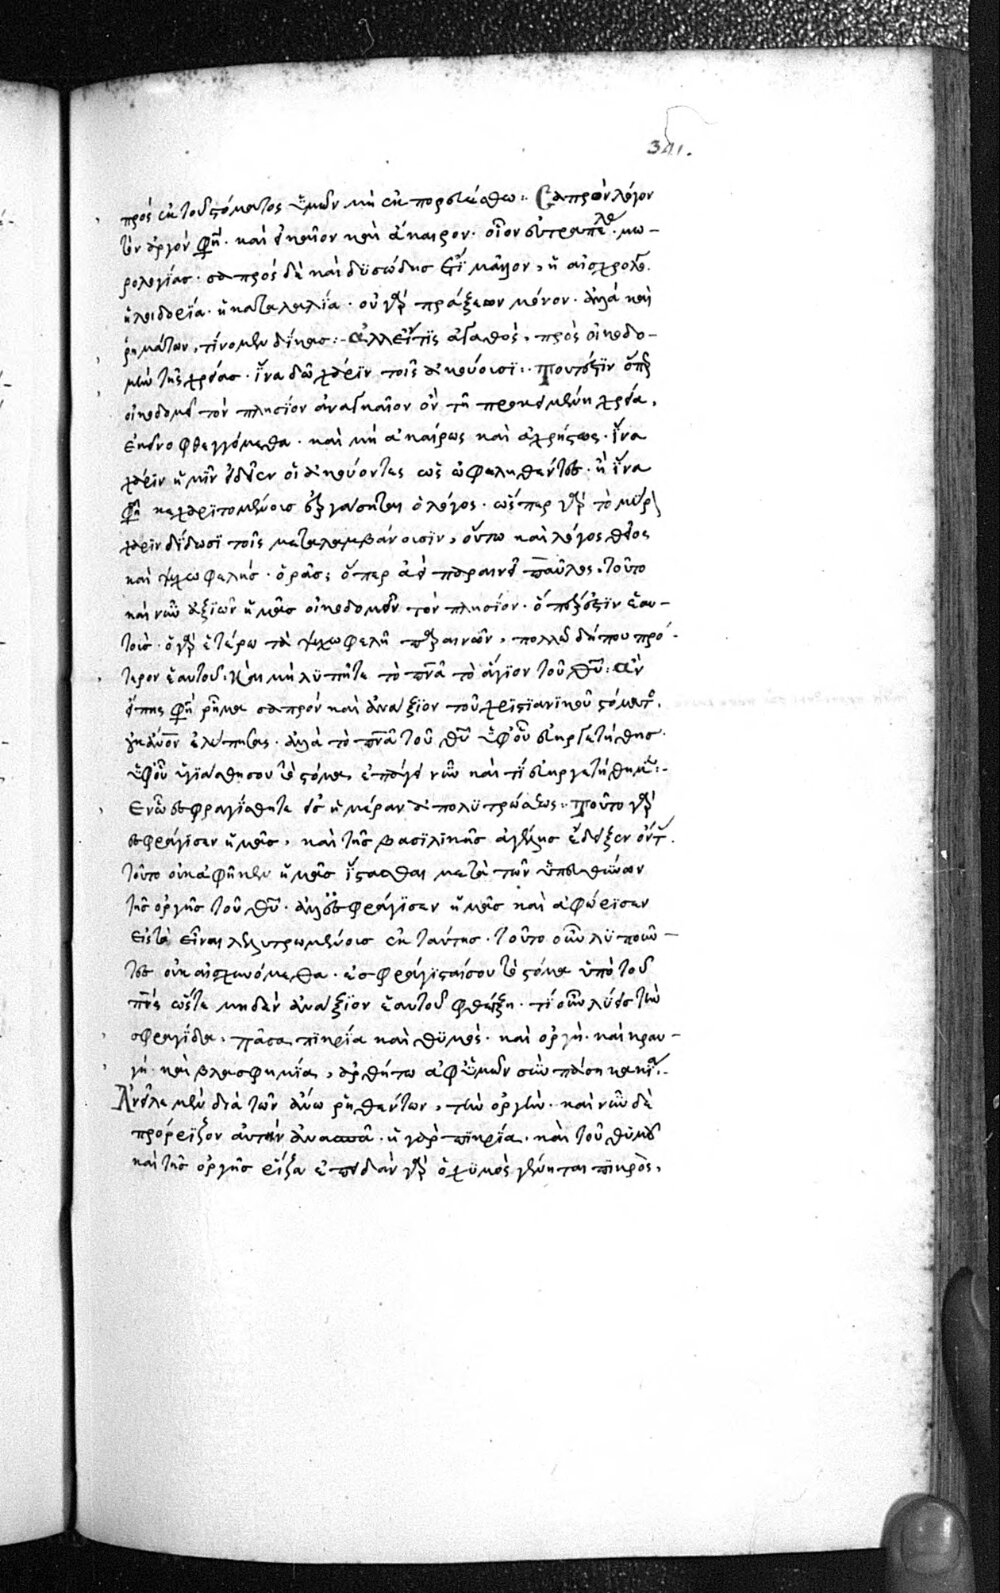 341.
πρὸς ἐκ τοῦ στόματος ὑμῶν μὴ ἐκπορευέσθω· Σαπρὸν λόγον
τὸν ἀργόν φη· καὶ εἰκαῖον καὶ ἄκαιρον· οἷον εὐτραπελ· μω-
ρολογίας· σαπρὸς δὲ καὶ δυσώδης ἐστὶ μᾶλλον, ἡ αἰσχρολο
ἡ λοιδορία· ἡ καταλαλιά· οὐ γὰρ πράξεων μόνον· ἀλλὰ καὶ
ῥημάτων, τίνομεν δίκας· ἀλλ εἴ τις ἀγαθὸς, πρὸς οἰκοδο-
μὴν τῆς χρείας· ἵνα δῶ χάριν τοῖς ἀκούουσι· Τουτέστιν ὅπερ
οἰκοδομεῖ τὸν πλησίον ἀναγκαῖον ὂν τῆ προκειμένη χρεία,
ἐκεῖνο φθεγγόμεθα· καὶ μὴ ἀκαίρως καὶ ἀχρήστως· ἵνα
χάριν ἡμῖν εἰδῶσιν οἱ ἀκούοντες ὡς ὠφεληθέντες· ἢ ἵνα
φη κεχαριτομένους ἐργάσηται ὁ λόγος· ὥσπερ γὰρ τὸ μύρ
χάριν δίδωσι τοῖς μεταλαμβάνουσιν, οὕτω καὶ λόγος θεῖος
καὶ ψυχωφελής· ὁρᾶς; ὅπερ ἀεὶ παραινεῖ παῦλος, τοῦτο
καὶ νῦν ἀξιῶν ἡμᾶς οἰκοδομεῖν τὸν πλησίον· ὅπερ ἐστὶν ἑαυ-
τούς· ὁ γὰρ ἑτέρω τὰ ψυχωφελῆ παραινῶν, πολλῶ δήπου πρό-
τερον ἑαυτοῦ· Καὶ μὴ λυπῆτε τὸ πνα τὸ ἅγιον τοῦ θυ· ἂν
εἴπης φη ῥῆμα σαπρὸν καὶ ἀνάξιον τοῦ χριστιανικοῦ στόματ,
οὐκ ἄνον ἐλύπησας· ἀλλὰ τὸ πνα τοῦ θυ ὑφ οὗ εὐηργετήθης
ὑφ οὗ ἡγιάσθη σου τὸ στόμα, ἐπάγει νῦν καὶ τί εὐηργετήθημεν·
Ἐν ὧ ἐσφραγίσθητε εἰς ἡμέραν ἀπολυτρώσεως· Τοῦτο γὰρ
ἐσφράγισεν ἡμᾶς, καὶ τῆς βασιλικῆς ἀγέλης ἔδειξεν ὄντ
τοῦτο οὐκ ἀφῆκεν ἡμᾶς ἵστασθαι μετὰ τῶν ὑπευθύνων
τῆς ὀργῆς τοῦ θυ· ἀλλ ἐσφράγισεν ἡμᾶς καὶ ἀφώρισεν
εἰς τὸ εἶναι λελυτρωμένους ἐκ ταύτης· τοῦτο οὖν λυποῦν-
τες οὐκ αἰσχυνόμεθα· ἐσφράγισταί σου τὸ στόμα ὑπὸ τοῦ
πνς ὥστε μηδὲν ἀνάξιον ἑαυτοῦ φθέγξη· τί οὖν λύεις τὴν
σφραγίδα, πᾶσα πικρία καὶ θυμὸς· καὶ ὀργὴ· καὶ κραυ-
γὴ· καὶ βλασφημία, ἀρθήτω ἀφ ὑμῶν σὺν πάση κακία·
Ἀνεῖλε μὲν διὰ τῶν ἄνω ῥηθέντων, τὴν ὀργὴν· καὶ νῦν δὲ
πρόριζον αὐτὴν ἀνασπᾶ· ἡ γὰρ πικρία· καὶ τοῦ θυμοῦ
καὶ τῆς ὀργῆς ῥίζα ἐπειδὰν γὰρ ὁ χυμὸς γένηται πικρὸς,